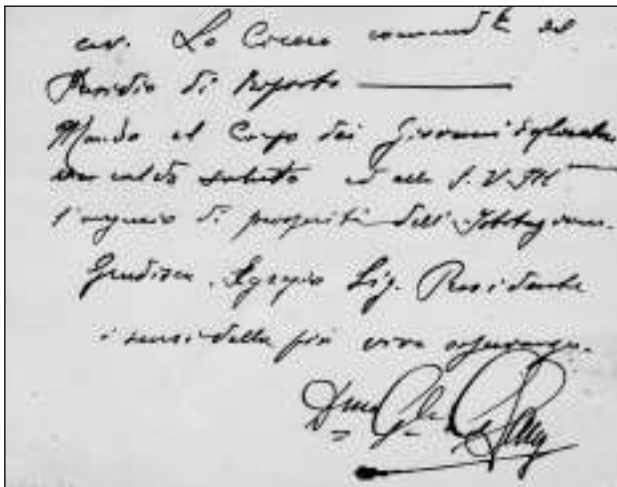 cav. Lo Cicero comand.te del
Presidio di Reparto
Mando al Corpo dei Giovani Esploratori
un caldo saluto ed alla S.V. Ill
l'augurio di prosperità dell'Istituzione.
Gradisca, Egregio Sig. Presidente
i sensi della più viva osservanza.